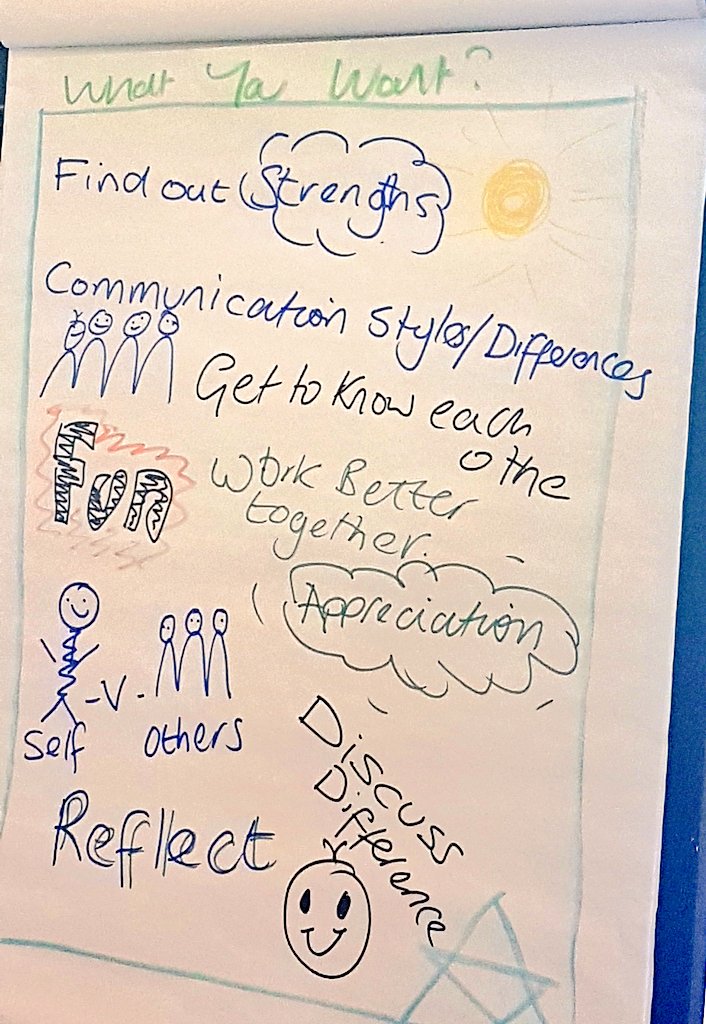 What Ya Want?
Find out Strengths
Communication Styles/Differences
Get to Know each
othe
Fun
Work Better
together.
Appreciation
-V-
Self
others
Discuss
Difference
Reflect